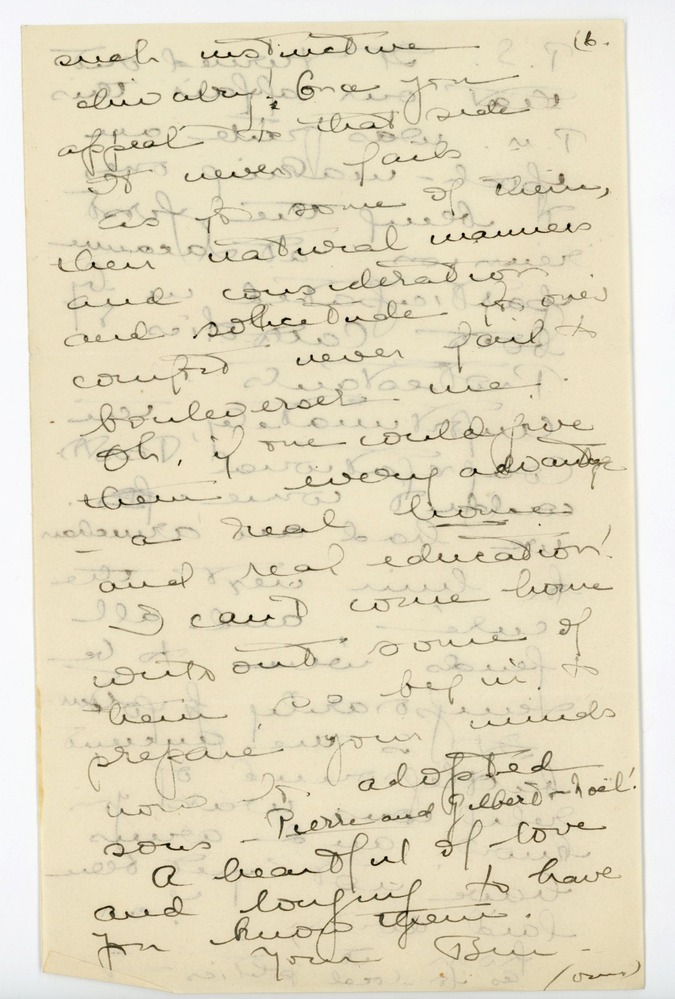 16.
such instinctive
chivalry! Once you
appeal to that side
it never fails.
As for some of them,
their natural manners
and consideration
and solicitude for one's
comfort never fail to
bouleverser me.
Oh, if one could give
them every advantage
- a real home
and real education!
I can't come home
without some of
them so begin to
prepare your minds
now for adopted
sons - Pierre and Gilbert - Noël!
A heartful of love
and longing to have
you know them.
Your Bun -
(over)